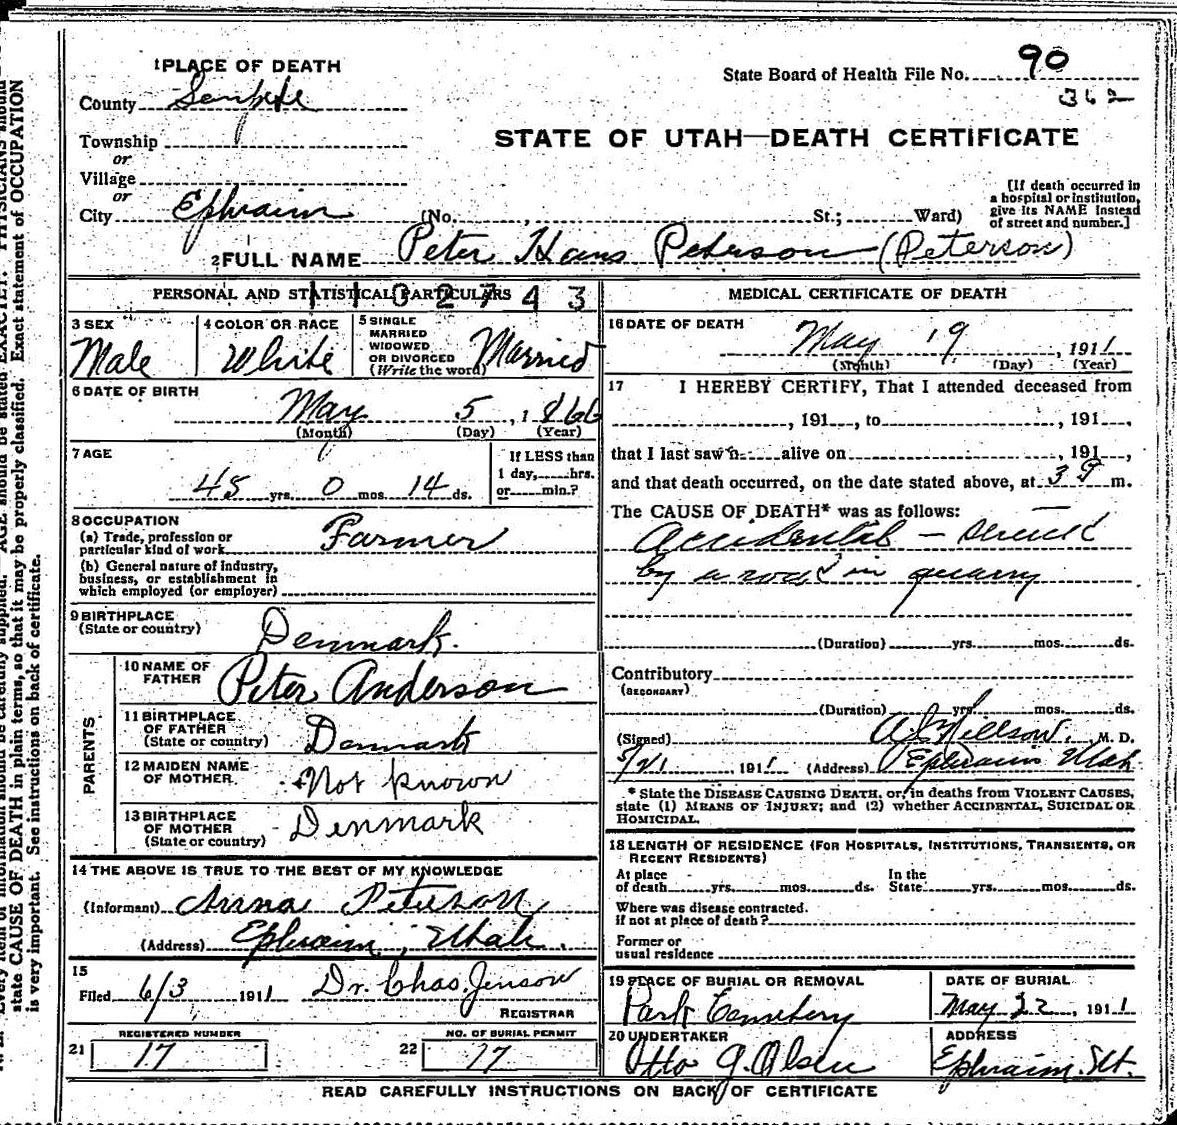 1 PLACE OF DEATH
State Board of Health File No. 90
County Sanpete
362
Township
or
Village
or
City Ephraim (No. , St.; Ward)
STATE OF UTAH—DEATH CERTIFICATE
[If death occurred in
a hospital or institution,
give its NAME instead
of street and number.]
2 FULL NAME Peter Hans Peterson (Peterson)
PERSONAL AND STATISTICAL PARTICULARS
1102743
3 SEX
Male
4 COLOR OR RACE
White
5 SINGLE
MARRIED
WIDOWED
OR DIVORCED
(Write the word)
Married
6 DATE OF BIRTH
May 5, 1866
(Month) (Day) (Year)
7 AGE
45 yrs. 0 mos. 14 ds.
If LESS than
1 day, hrs.
or min.?
8 OCCUPATION
(a) Trade, profession or
particular kind of work
Farmer
(b) General nature of industry,
business, or establishment in
which employed (or employer)
9 BIRTHPLACE
(State or country)
Denmark.
PARENTS
10 NAME OF
FATHER
Peter Anderson
11 BIRTHPLACE
OF FATHER
(State or country)
Denmark
12 MAIDEN NAME
OF MOTHER
Not known
13 BIRTHPLACE
OF MOTHER
(State or country)
Denmark
14 THE ABOVE IS TRUE TO THE BEST OF MY KNOWLEDGE
(Informant) Anna Peterson
(Address) Ephraim, Utah.
15
Filed 6/3 1911 Dr. Chas. Jenson
REGISTRAR
REGISTERED NUMBER
21 17
NO. OF BURIAL PERMIT
22 17
MEDICAL CERTIFICATE OF DEATH
16 DATE OF DEATH
May 19, 1911
(Month) (Day) (Year)
17 I HEREBY CERTIFY, That I attended deceased from
, 191 , to , 191 ,
that I last saw h alive on , 191 ,
and that death occurred, on the date stated above, at 3 P m.
The CAUSE OF DEATH* was as follows:
Accidental — struck
by a rock in quarry
(Duration) yrs. mos. ds.
Contributory
(SECONDARY)
(Duration) yrs. mos. ds.
(Signed) M. D.
5/21, 1911 (Address) Ephraim Utah
* State the DISEASE CAUSING DEATH, or, in deaths from VIOLENT CAUSES,
state (1) MEANS OF INJURY; and (2) whether ACCIDENTAL, SUICIDAL OR
HOMICIDAL.
18 LENGTH OF RESIDENCE (FOR HOSPITALS, INSTITUTIONS, TRANSIENTS, OR
RECENT RESIDENTS)
At place
of death yrs. mos. ds.
In the
State yrs. mos. ds.
Where was disease contracted.
if not at place of death?
Former or
usual residence
19 PLACE OF BURIAL OR REMOVAL
Park Cemetery
DATE OF BURIAL
May 22, 1911
20 UNDERTAKER
Otto G. Olsen
ADDRESS
Ephraim. Ut.
READ CAREFULLY INSTRUCTIONS ON BACK OF CERTIFICATE
state CAUSE OF DEATH in plain terms, so that it may be properly classified. Exact statement of OCCUPATION
is very important. See instructions on back of certificate.